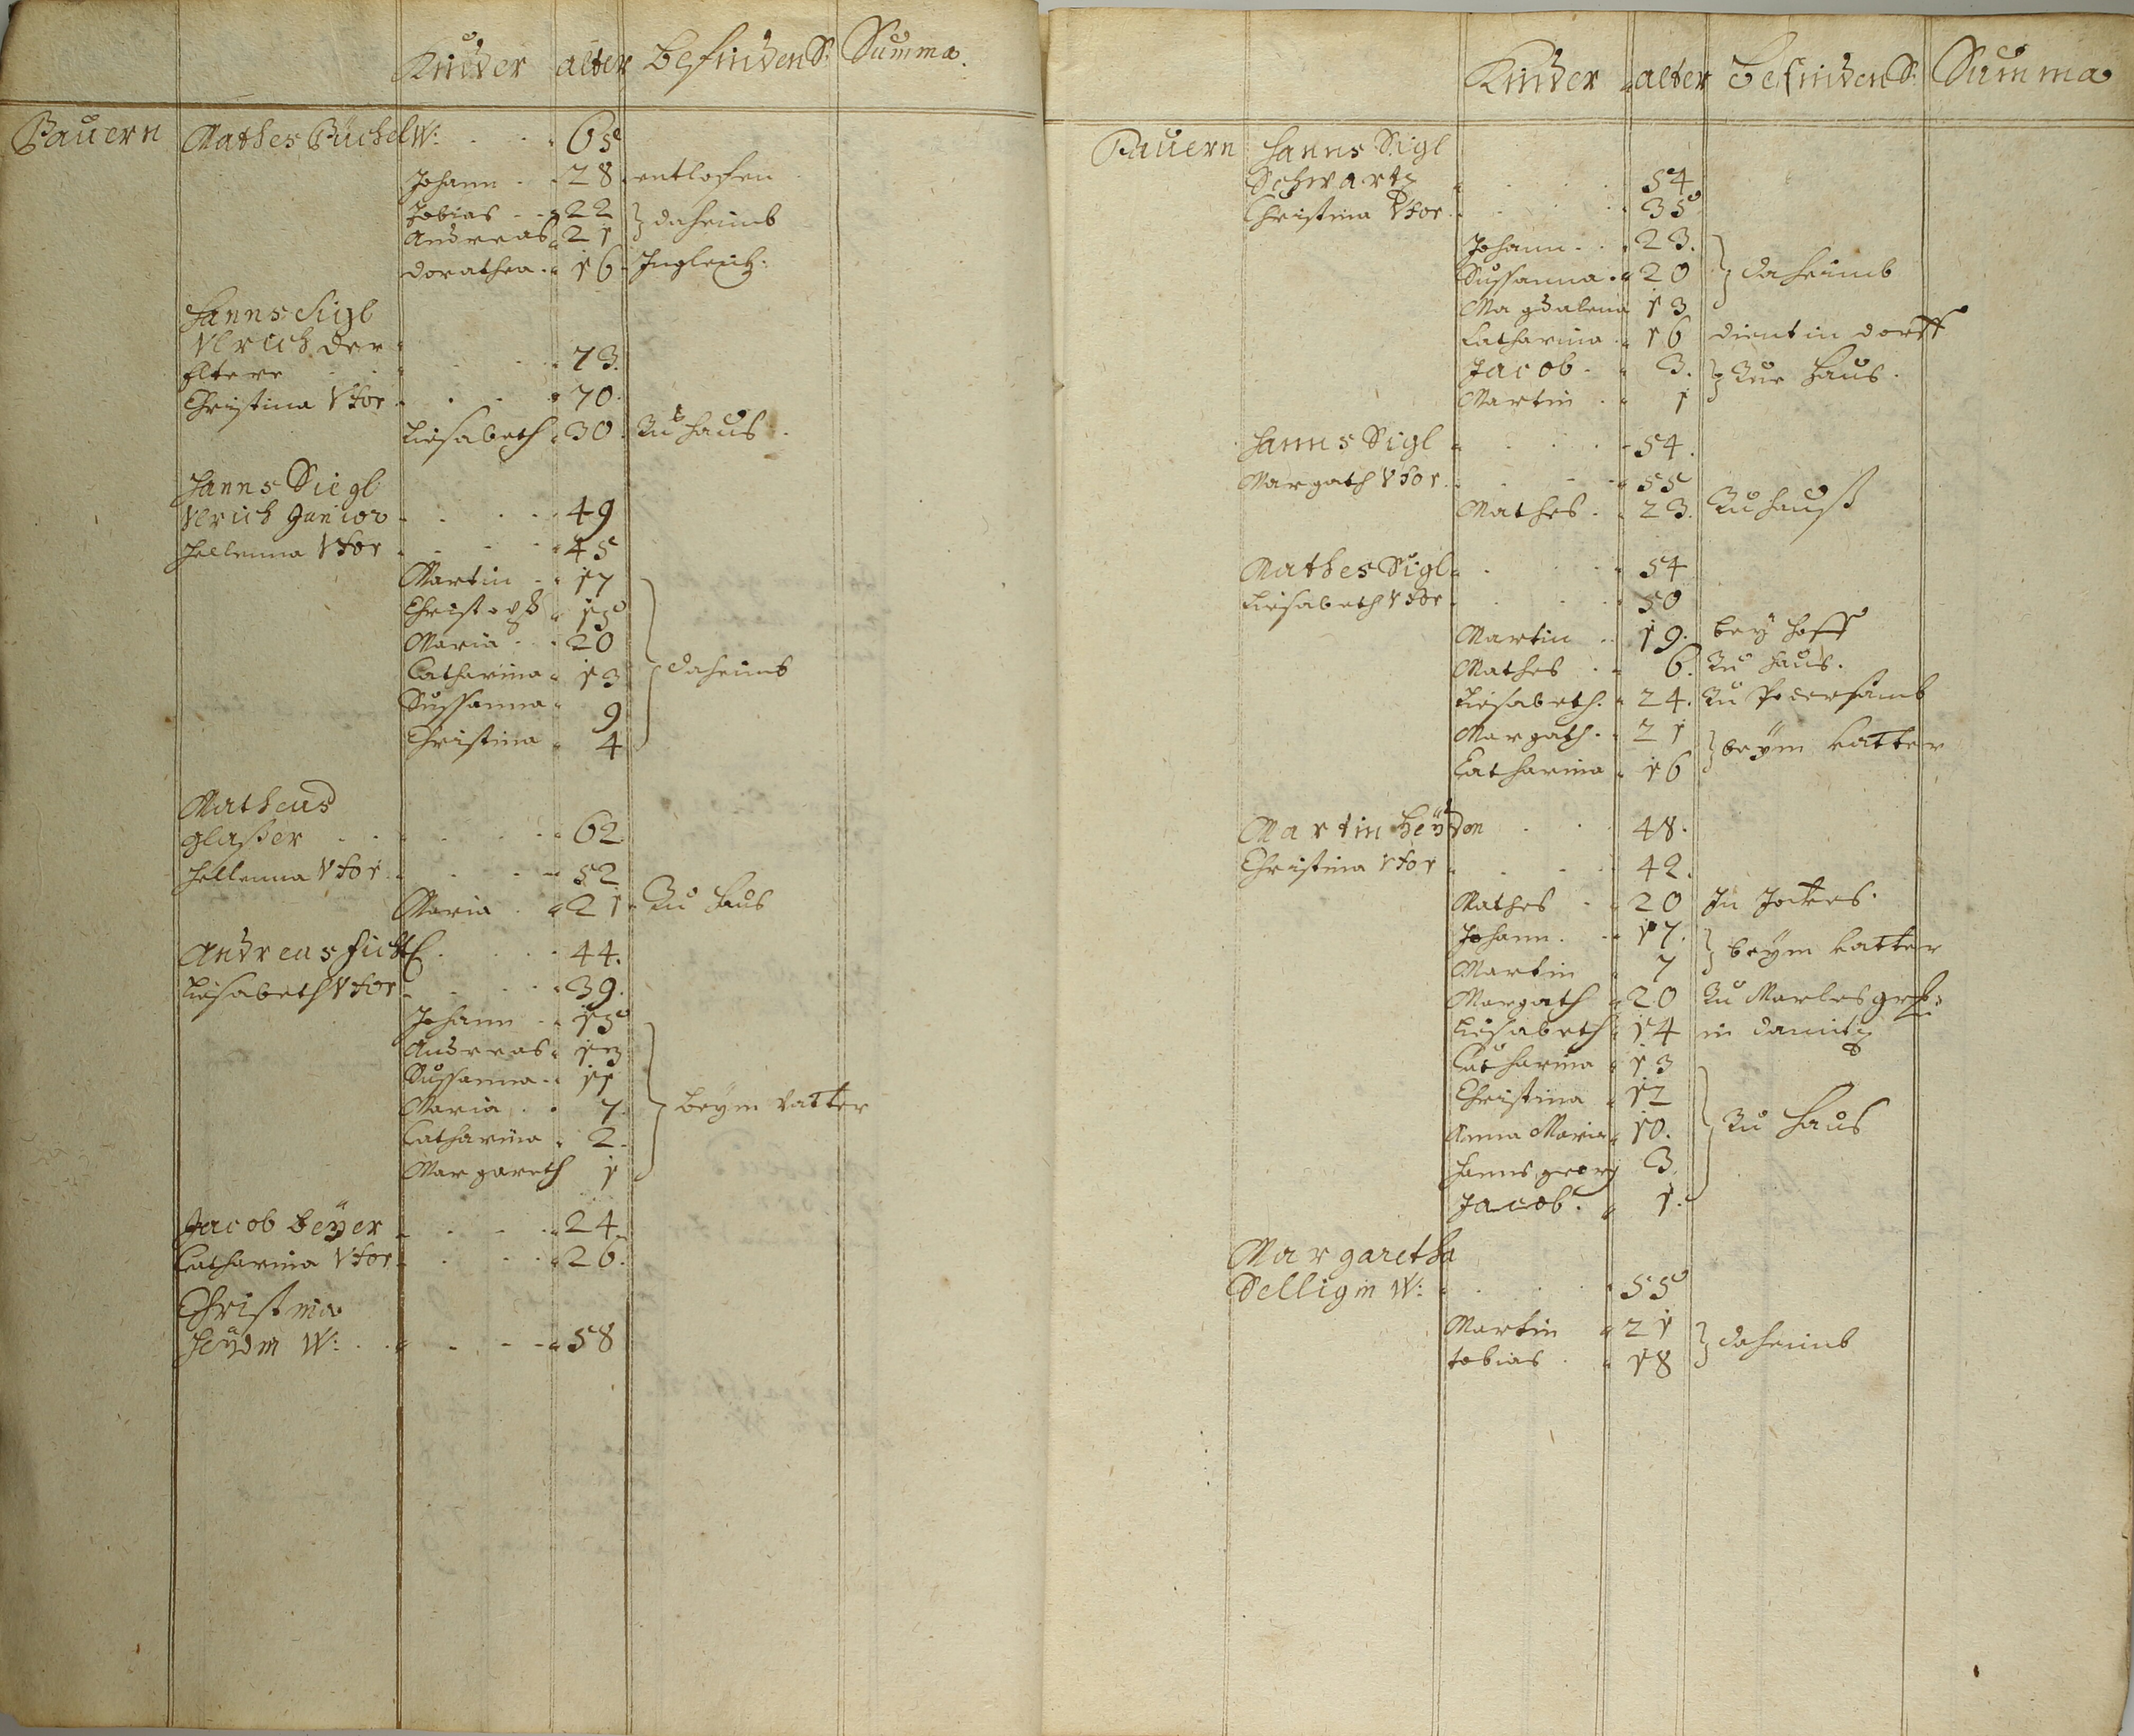 Kinder alter befinden S: Summa.
Bauern Mathes Püchel W: 65
Johann 28 entlofen
Tobias 22 } daheimb
Andreas 21
Dorathea 16 Ingleich:
Hanns Sigl
Ulrich der
Eltere 73.
Christina Vxor 70.
Liesabeth 30. Zu haus.
Hanns Siegl
Ulrich Junior 49
Hellenna Vxor 45
Martin 17
Christoph 15
Maria 20
Catharina 13 } daheimb
Sussanna 9
Christina 4
Matheus
glaßer 62
Hellenna Vxor 52
Maria 21 Zu Haus
Andreas Fichtl 44.
Liesabeth Vxor 39.
Johann 15
Andreas 13
Sussanna 11
Maria 7. } beym Vatter
Catharina 2.
Margareth 1
Jacob beÿer 24
Catharina Vxor 26.
Christina
Heÿdin W: 58
Kinder alter befinden S: Summa
Bauern Hanns Sigl
Schwartz 54
Christina Vxor 35
Johann 23.
Sussanna 20 } daheimb
Magdalena 13
Catharina 16 dient in dorff
Jacob 3. } Zue Haus.
Martin 1
Hanns Sigl 54.
Margath Vxor. 55
Mathes 23. Zu hauß
Mathes Sigl 54
Liesabeth Vxor 50
Martin 19. beÿ hoff
Mathes 6. Zu Haus.
Liesabeth 24. Zu Podersamb
Margath 21 } beÿm Vatter
Catharina 16
Martin Heÿden 48.
Christina Vxor 42.
Mathes 20 In
Johann 17. } beÿm Vatter
Martin 7
Margath 20 Zu
Liesabeth 14 in
Catharina 13
Christina 12
Anna Maria 10. } Zu Haus
Hanns georg 3
Jacob 1.
Margaretha
Selligin W: 55
Martin 21 } daheimb
tobias 18